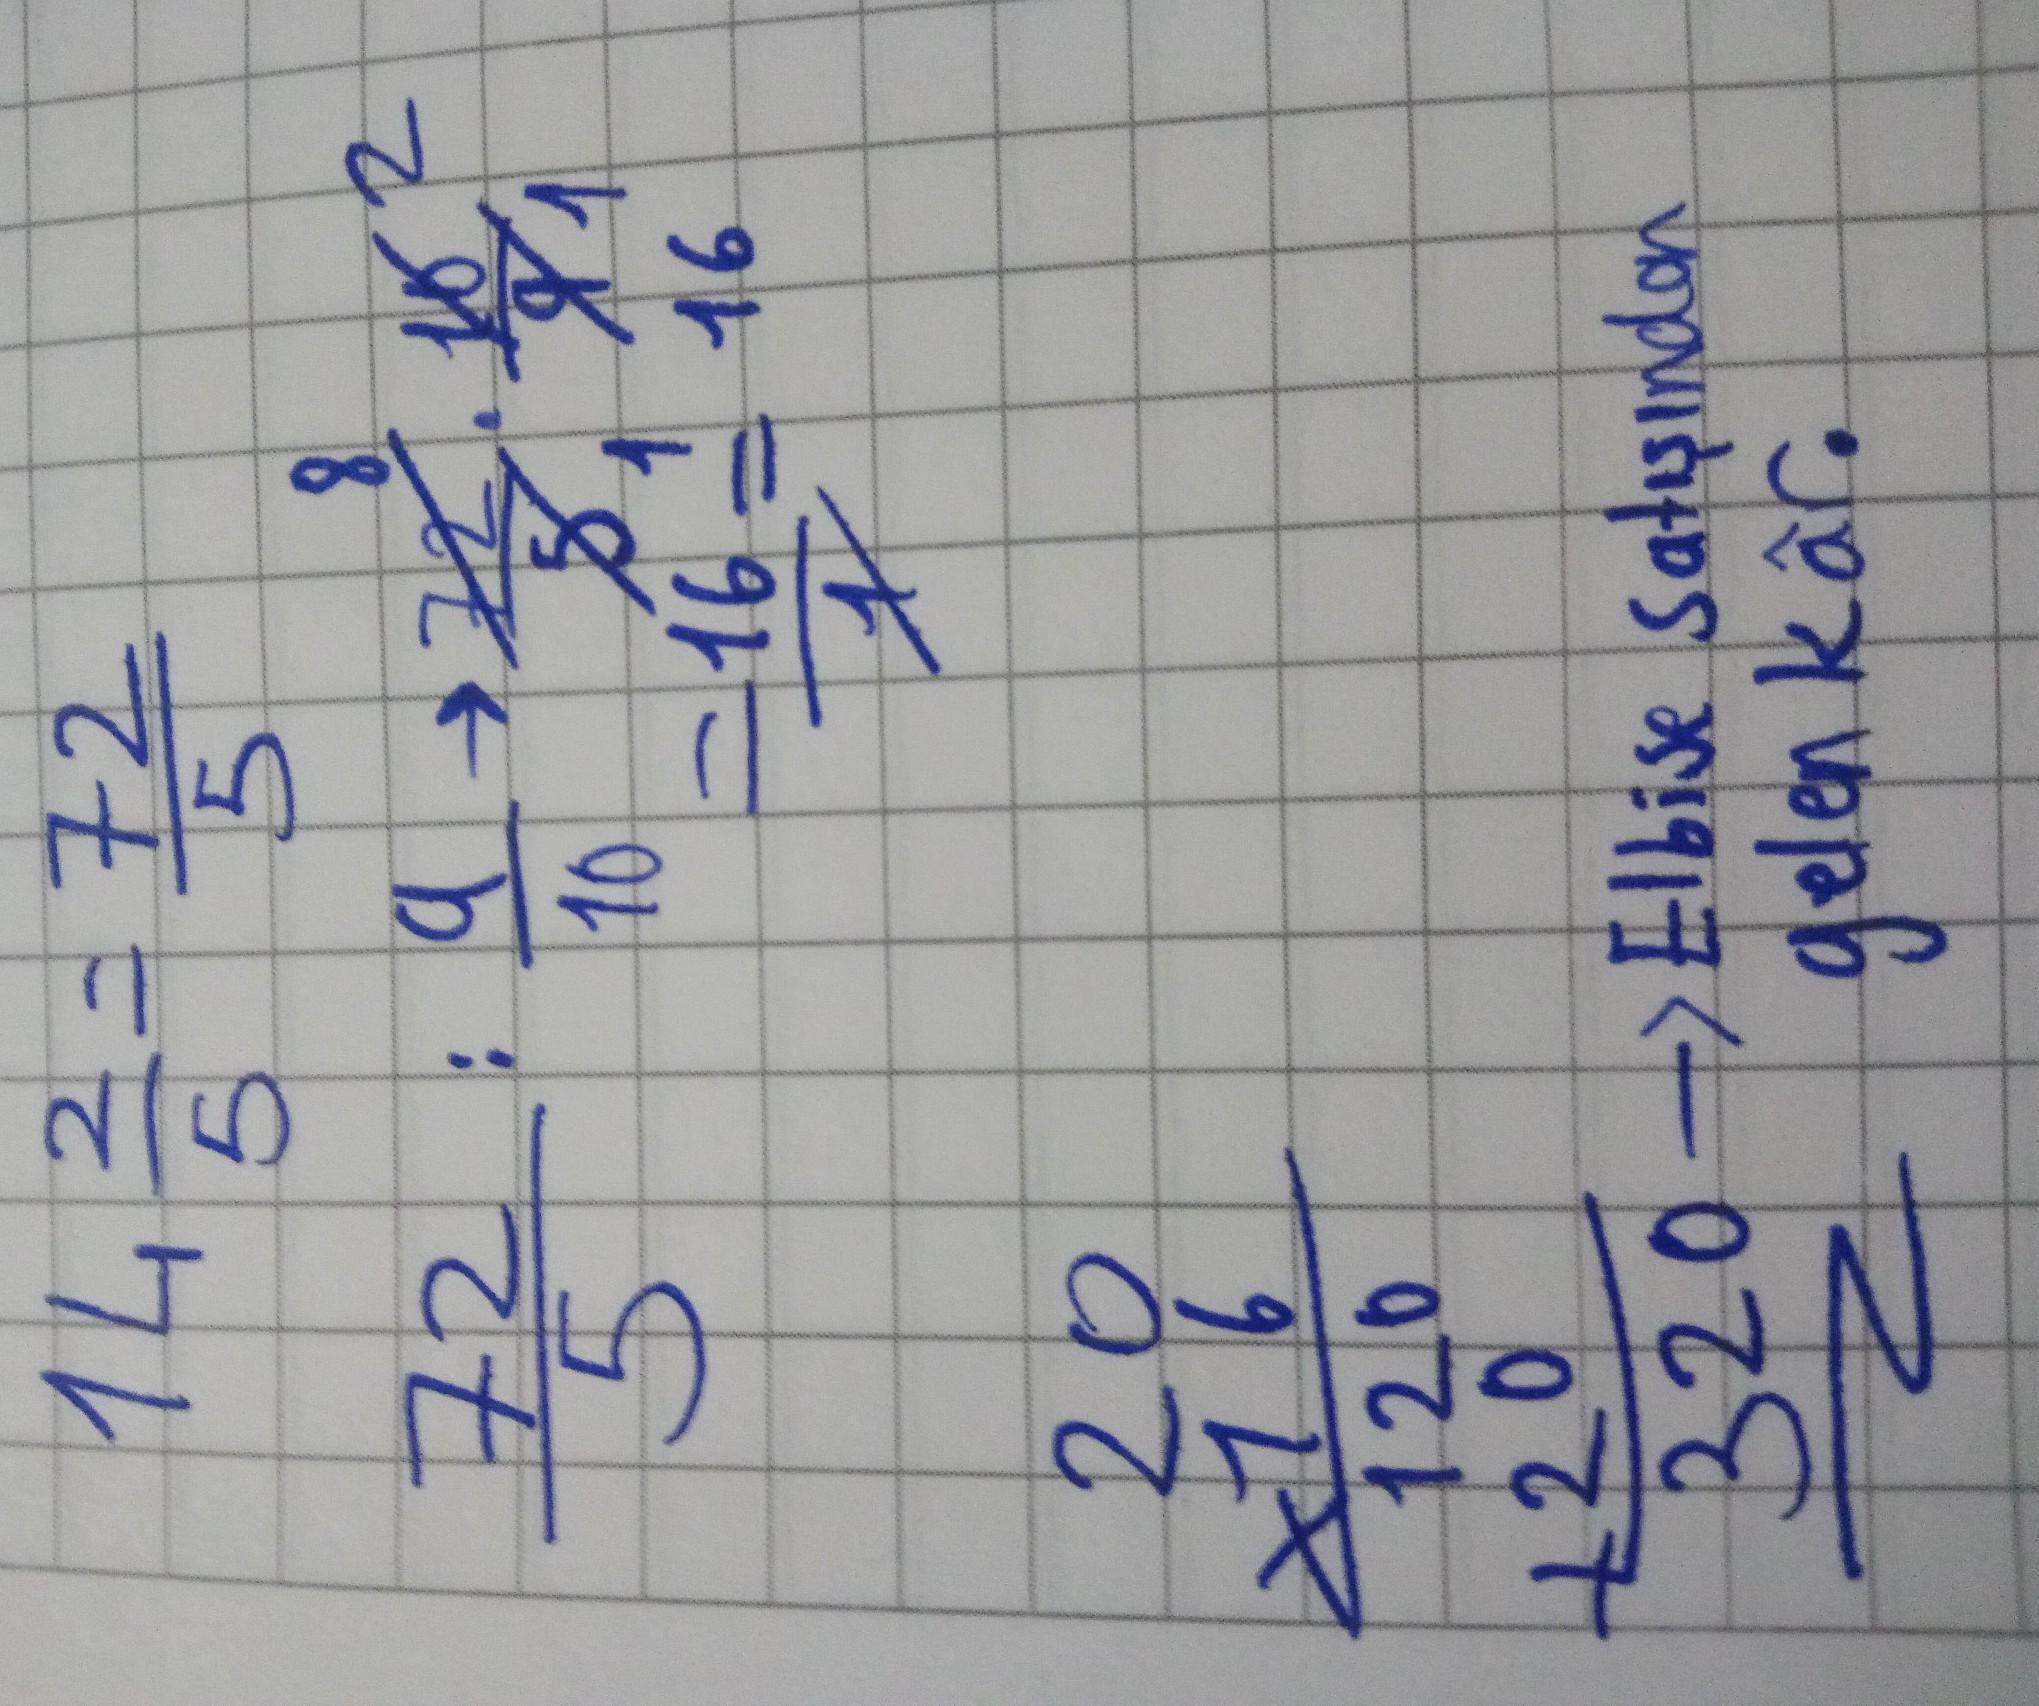 14 2/5 = 72/5
72/5 : 9/10 → 72/5 . 10/9
8 2
1 1
= 16/1 = 16
20
x 16
120
+ 20
320 → Elbise Satışından
gelen kâr.